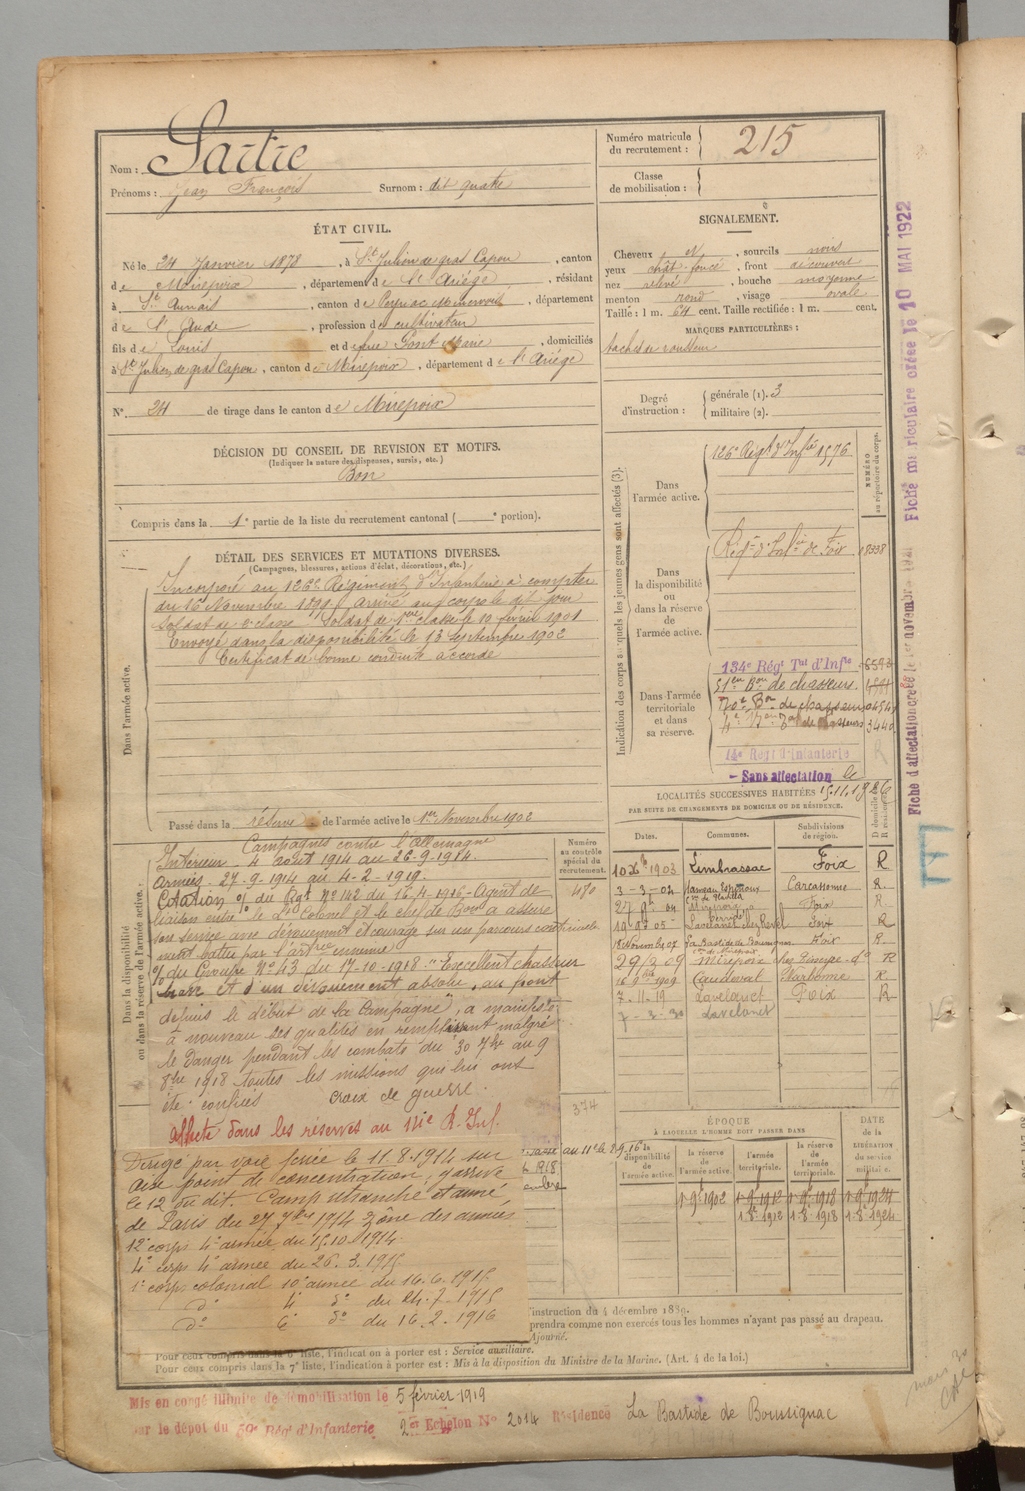 Nom : Sartre
Prénoms : Jean François Surnom : dit quatre
Numéro matricule du recrutement : 215
Classe de mobilisation :
ÉTAT CIVIL.
Né le 24 Janvier 1878, à St Julien de gras Capou, canton
de Mirepoix, département de l'Ariège, résidant
à St Aunais, canton de Peyriac Minervois, département
de l'Aude, profession de cultivateur
fils de Louis et de feue Pont Marie, domiciliés
à St Julien de gras Capou, canton de Mirepoix, département de l'Ariège
N° 24 de tirage dans le canton de Mirepoix
SIGNALEMENT.
Cheveux N, sourcils noirs
yeux chât. foncé, front découvert
nez relevé, bouche moyenne
menton rond, visage ovale
Taille : 1 m. 64 cent. Taille rectifiée : 1 m. cent.
MARQUES PARTICULIÈRES :
taches de rousseur
Degré d'instruction : générale (1). 3
militaire (2).
DÉCISION DU CONSEIL DE REVISION ET MOTIFS.
(Indiquer la nature des dispenses, sursis, etc.)
Bon
Compris dans la 1e partie de la liste du recrutement cantonal ( e portion).
DÉTAIL DES SERVICES ET MUTATIONS DIVERSES.
(Campagnes, blessures, actions d'éclat, décorations, etc.)
Dans l'armée active.
Incorporé au 126e Régiment d'Infanterie à compter
du 16 Novembre 1899, arrivé au corps le dit jour
soldat de 2e classe. Soldat de 1ère classe le 10 février 1901
Envoyé dans la disponibilité le 13 septembre 1902
Certificat de bonne conduite accordé
Passé dans la réserve de l'armée active le 1er Novembre 1902
Indication des corps auxquels les jeunes gens sont affectés (3).
NUMÉRO au répertoire du corps.
Dans l'armée active.
126e Régt d'Infie 1576
Dans la disponibilité ou dans la réserve de l'armée active.
Régt d'Infie de Foix
Dans l'armée territoriale et dans sa réserve.
134e Régt Tal d'Infie
51eme Bon de chasseurs
70e Bon de chasseurs
14e Régt d'Infanterie
Sans affectation le
15.11.1926
LOCALITÉS SUCCESSIVES HABITÉES
PAR SUITE DE CHANGEMENTS DE DOMICILE OU DE RÉSIDENCE.
Dates. Communes. Subdivisions de région. D domicile R résidence.
1903 Limbrassac Foix R
3-3-04 Carcassonne R.
Foix R.
Lavelanet Foix R
La Bastide de Bousignac Foix R.
29/3 09 Mirepoix R
1909 Caudeval Narbonne R
7-11-19 Lavelanet Foix R
7-3-30 Lavelanet
Dans la disponibilité ou dans la réserve de l'armée active.
Numéro au contrôle spécial du recrutement.
480
374
Campagnes contre l'Allemagne
Intérieur 4 août 1914 au 26-9-1914.
Armées. 27-9-1914 au 4-2-1919.
Citation o/ du Rgt N° 142 du 16-4-1916 - Agent de
liaison entre le Lt Colonel et le chef de Bon a assuré
son service avec dévouement et courage sur un parcours continuelle-
ment battu par l'artrie ennemie
o/ du Groupe N° 43 du 17-10-1918 : "Excellent chasseur
brave et d'un dévouement absolu, au front
depuis le début de la campagne", a manifesté
à nouveau ses qualités en remplissant malgré
le danger pendant les combats du 30 7bre au 9
8bre 1918 toutes les missions qui lui ont
été confiées croix de guerre.
Affecté dans les réserves au 14e R. Inf.
Dirigé par voie ferrée le 11.8.1914 sur
un point de concentration, y arrive
le 12 du dit. Camp retranché et armé
de Paris du 27 7bre 1914 Zône des armées
12e corps 4e armée du 15.10.1914
4e corps 4e armée du 26.3.1915
1e corps colonial 10e armée du 16.6.1915
do 4e do du 24-7-1915
do 6e do du 16.2.1916
ÉPOQUE
À LAQUELLE L'HOMME DOIT PASSER DANS
la disponibilité de l'armée active.
la réserve de l'armée active.
l'armée territoriale.
la réserve de l'armée territoriale.
DATE de la LIBÉRATION du service militaire.
1-9e 1902 1-9e 1912 1-9e 1918 1-9e 1924
1.8e 1912 1.8e 1918 1.8e 1924
instruction du 4 décembre 1889.
prendra comme non exercés tous les hommes n'ayant pas passé au drapeau.
Ajourné.
Pour ceux compris dans la 6e liste, l'indication à porter est : Service auxiliaire.
Pour ceux compris dans la 7e liste, l'indication à porter est : Mis à la disposition du Ministre de la Marine. (Art. 4 de la loi.)
Mis en congé illimité de démobilisation le 5 février 1919
sur le dépôt du 59e Régt d'Infanterie 2e Echelon N° 2014 Résidence La Bastide de Bousignac
Fiche d'affectation créée le 1er novembre 1921 Fiche matriculaire créée le 10 MAI 1922